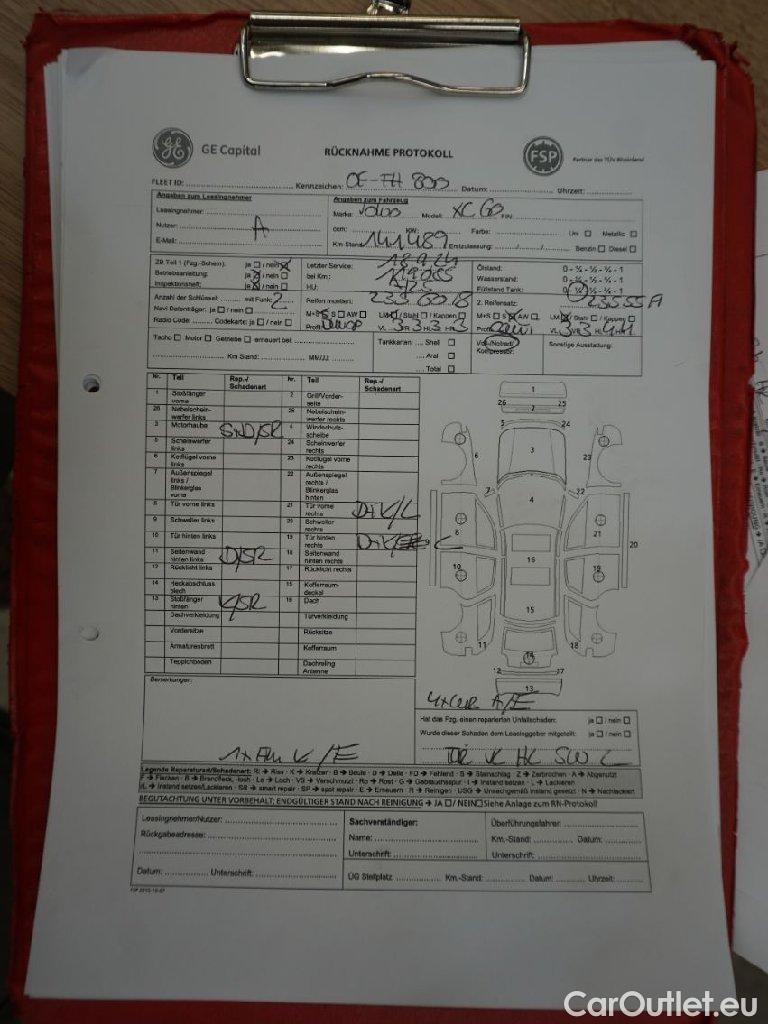 GE Capital RÜCKNAHME PROTOKOLL FSP Partner des TÜV Rheinland
FLEET ID: Kennzeichen: OF-FH 800 Datum: Uhrzeit:
Angaben zum Leasingnehmer Angaben zum Fahrzeug
Leasingnehmer: Marke: Volvo Modell: XC 60 FIN:
Nutzer: A ccm: KW: Farbe: Uni Metallic
E-Mail: Km Stand: 141489 Erstzulassung: Benzin Diesel
ZB Teil 1 (Fzg.-Schein): ja / nein Letzter Service: 18.9.24 Ölstand: 0 - ¼ - ½ - ¾ - 1
Betriebsanleitung: ja / nein bei Km: Wasserstand: 0 - ¼ - ½ - ¾ - 1
Inspektionsheft: ja / nein HU: Füllstand Tank: 0 - ¼ - ½ - ¾ - 1
Anzahl der Schlüssel: mit Funk: 2 Reifen montiert: 235 60 18 2. Reifensatz:
Navi Datenträger: ja / nein M+S S AW LM / Stahl / Kappen M+S S AW LM / Stahl / Kappen
Radio Code: Codekarte: ja / nein Profil Dunlop VL 3 VR 3 HL 3 HR 3 Profil
Tacho Motor Getriebe erneuert bei Tankkarten: Shell Voll-/Notrad/ Sonstige Ausstattung:
Aral Kompressor:
Km Stand: MM/JJ Total
Nr. Teil Rep.-/ Schadenart Nr. Teil Rep.-/ Schadenart
1 Stoßfänger vorne 2 Grill/Vorderseite
26 Nebelscheinwerfer links 25 Nebelscheinwerfer rechts
3 Motorhaube S+D/SR 4 Windschutzscheibe
5 Scheinwerfer links 24 Scheinwerfer rechts
6 Kotflügel vorne links 23 Kotflügel vorne rechts
7 Außenspiegel links / Blinkerglas vorne 22 Außenspiegel rechts / Blinkerglas hinten
8 Tür vorne links 21 Tür vorne rechts D+K/L
9 Schweller links 20 Schweller rechts
10 Tür hinten links 19 Tür hinten rechts
11 Seitenwand hinten links D/SR 18 Seitenwand hinten rechts
12 Rücklicht links 17 Rücklicht rechts
14 Heckabschlussblech 15 Kofferraumdeckel
13 Stoßfänger hinten K/SR 16 Dach
Dachverkleidung Türverkleidung
Vordersitze Rücksitze
Armaturenbrett Kofferraum
Teppichboden Dachreling Antenne
1
26 2 25
5 24
6 3 23
7 4 22
8 21
9 20
10 16 19
15
11 14 18
12 17
13
Bemerkungen:
A/E
Hat das Fzg. einen reparierten Unfallschaden: ja / nein
Wurde dieser Schaden dem Leasinggeber mitgeteilt: ja / nein
Legende Reparaturart/Schadenart: RI → Riss · K → Kratzer · B → Beule · D → Delle · FD → Fehlend · S → Steinschlag · Z → Zerbrochen · A → Abgenutzt
F → Flecken · B → Brandfleck, -loch · Lo → Loch · VS → Verschmutzt · Ro → Rost · G → Gebrauchsspur · I → Instand setzen · L → Lackieren
IL → Instand setzen/Lackieren · SR → smart repair · SP → spot repair · E → Erneuern · R → Reinigen · USG → Unsachgemäß instand gesetzt · N → Nachlackiert
BEGUTACHTUNG UNTER VORBEHALT; ENDGÜLTIGER STAND NACH REINIGUNG → JA / NEIN Siehe Anlage zum RN-Protokoll
Leasingnehmer/Nutzer: Sachverständiger: Überführungsfahrer:
Rückgabeadresse: Name: Km.-Stand: Datum:
Unterschrift: Unterschrift:
Datum: Unterschrift: ÜG Stellplatz Km.-Stand: Datum: Uhrzeit:
CarOutlet.eu